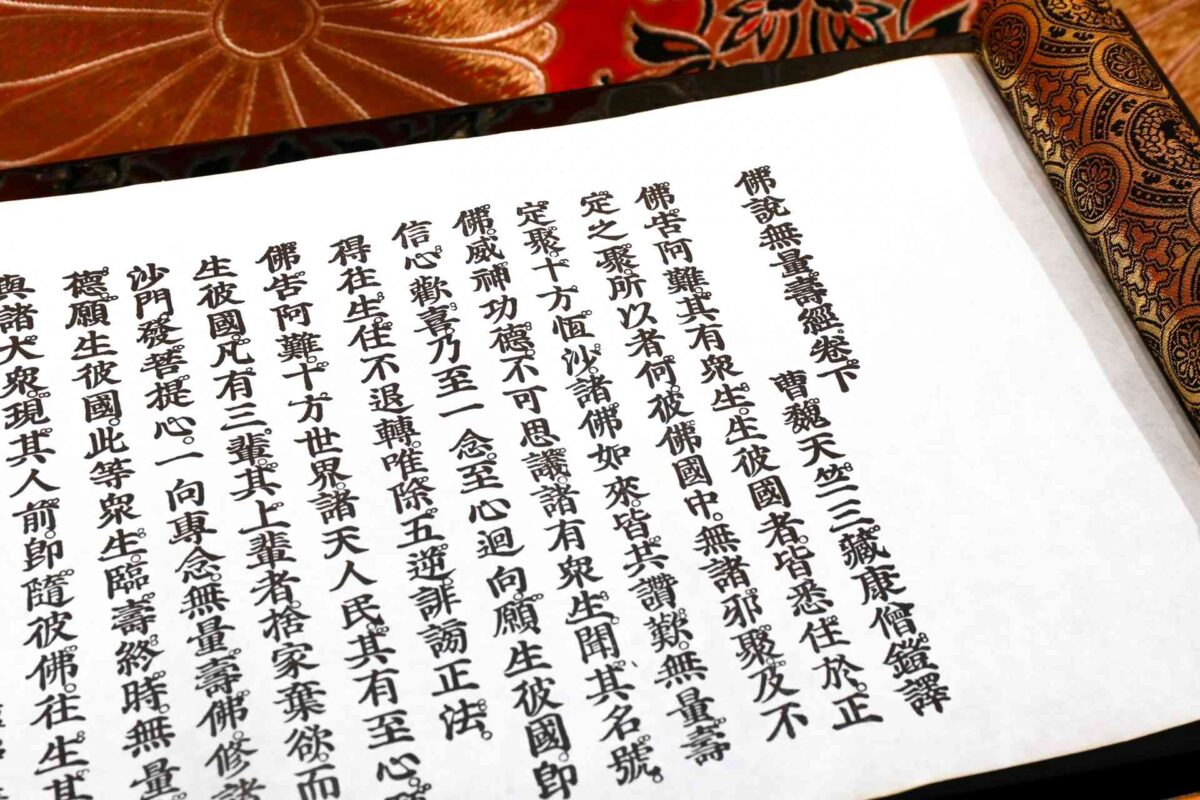 佛說無量壽經卷下
曹魏天竺三藏康僧鎧譯
佛告阿難其有衆生生彼國者皆悉住於正
定之聚所以者何彼佛國中無諸邪聚及不
定聚十方恒沙諸佛如來皆共讚歎無量壽
佛威神功德不可思議諸有衆生聞其名號
信心歡喜乃至一念至心迴向願生彼國即
得往生住不退轉唯除五逆誹謗正法
佛告阿難十方世界諸天人民其有至心
生彼國凡有三輩其上輩者捨家棄欲而
沙門發菩提心一向專念無量壽佛修諸
德願生彼國此等衆生臨壽終時無量
與諸大衆現其人前即隨彼佛往生其